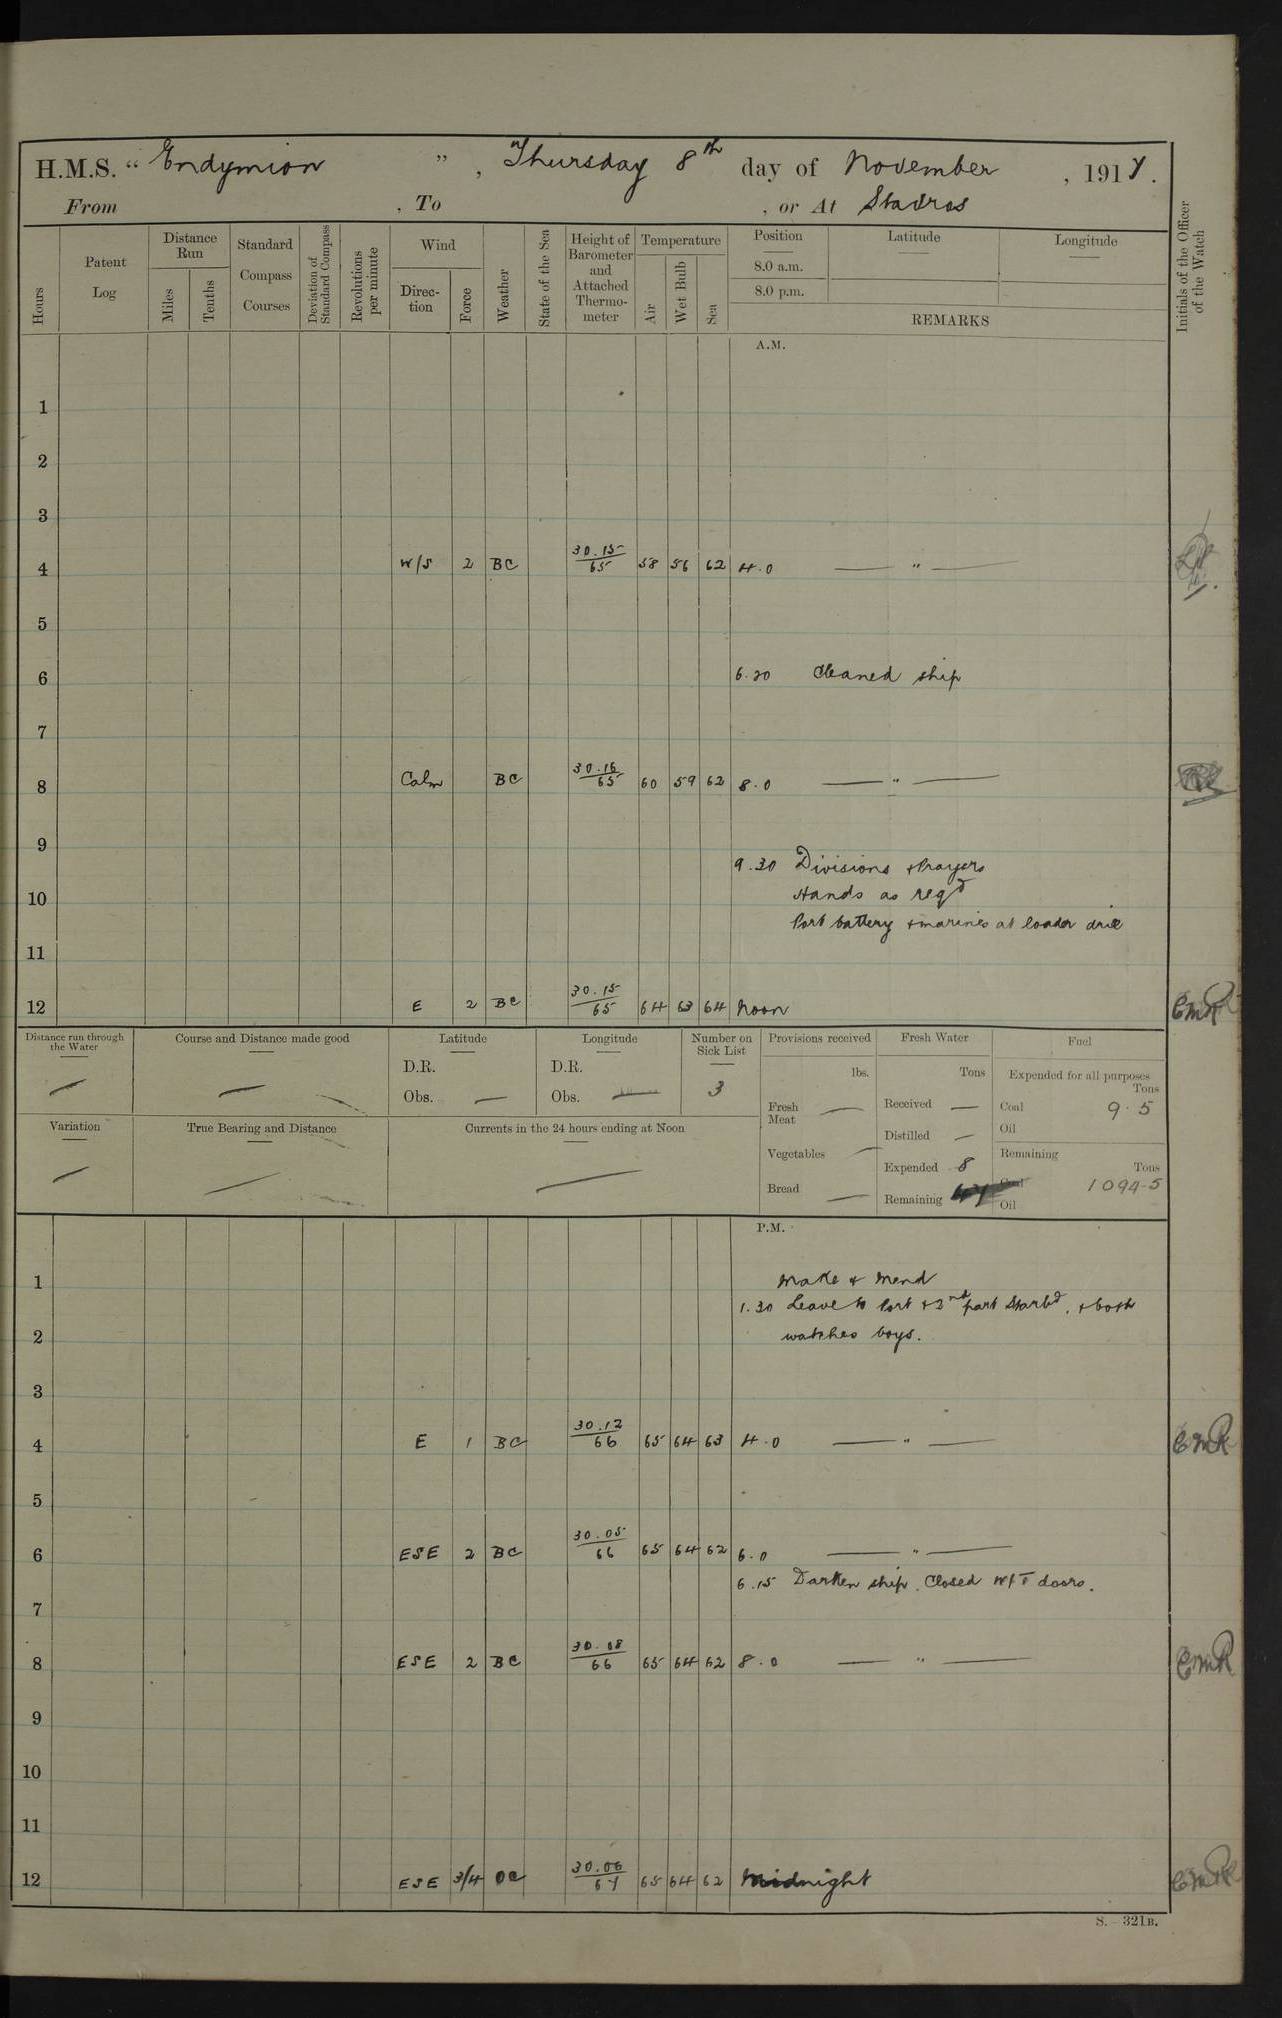 H.M.S. “ Endymion ”, Thursday 8th day of November , 1917.
From , To , or At Stavros
Hours
Patent Log
Distance Run
Miles
Tenths
Standard Compass Courses
Deviation of Standard Compass
Revolutions per minute
Wind
Direction
Force
Weather
State of the Sea
Height of Barometer and Attached Thermometer
Temperature
Air
Wet Bulb
Sea
Position
8.0 a.m.
8.0 p.m.
Latitude
Longitude
REMARKS
Initials of the Officer of the Watch
A.M.
1
2
3
4 W/S 2 BC 30.15/65 58 56 62 4.0 — " —
5
6 6.20 Cleaned ship
7
8 Calm BC 30.16/65 60 59 62 8.0 — " —
9
9.30 Divisions + Prayers
10 Hands as reqd
Port battery + marines at loader drill
11
12 E 2 BC 30.15/65 64 63 64 Noon CMR
Distance run through the Water —
Course and Distance made good —
Latitude
D.R.
Obs. —
Longitude
D.R.
Obs. —
Number on Sick List
3
Provisions received
lbs.
Fresh Meat —
Vegetables —
Bread —
Fresh Water
Tons
Received —
Distilled —
Expended 8
Remaining
Fuel
Expended for all purposes
Tons
Coal 9.5
Oil
Remaining
Tons
Coal 1094.5
Oil
Variation —
True Bearing and Distance —
Currents in the 24 hours ending at Noon —
P.M.
1 Make + Mend
1.30 Leave to Port + 2nd part Starbd, + both
2 watches boys.
3
4 E 1 BC 30.12/66 65 64 63 4.0 — " — CMR
5
6 ESE 2 BC 30.05/66 65 64 62 6.0 — " —
6.15 Darken ship. Closed W/T doors.
7
8 ESE 2 BC 30.08/66 65 64 62 8.0 — " — CMR
9
10
11
12 ESE 3/4 OC 30.06/67 65 64 62 Midnight CMR
S.—321B.